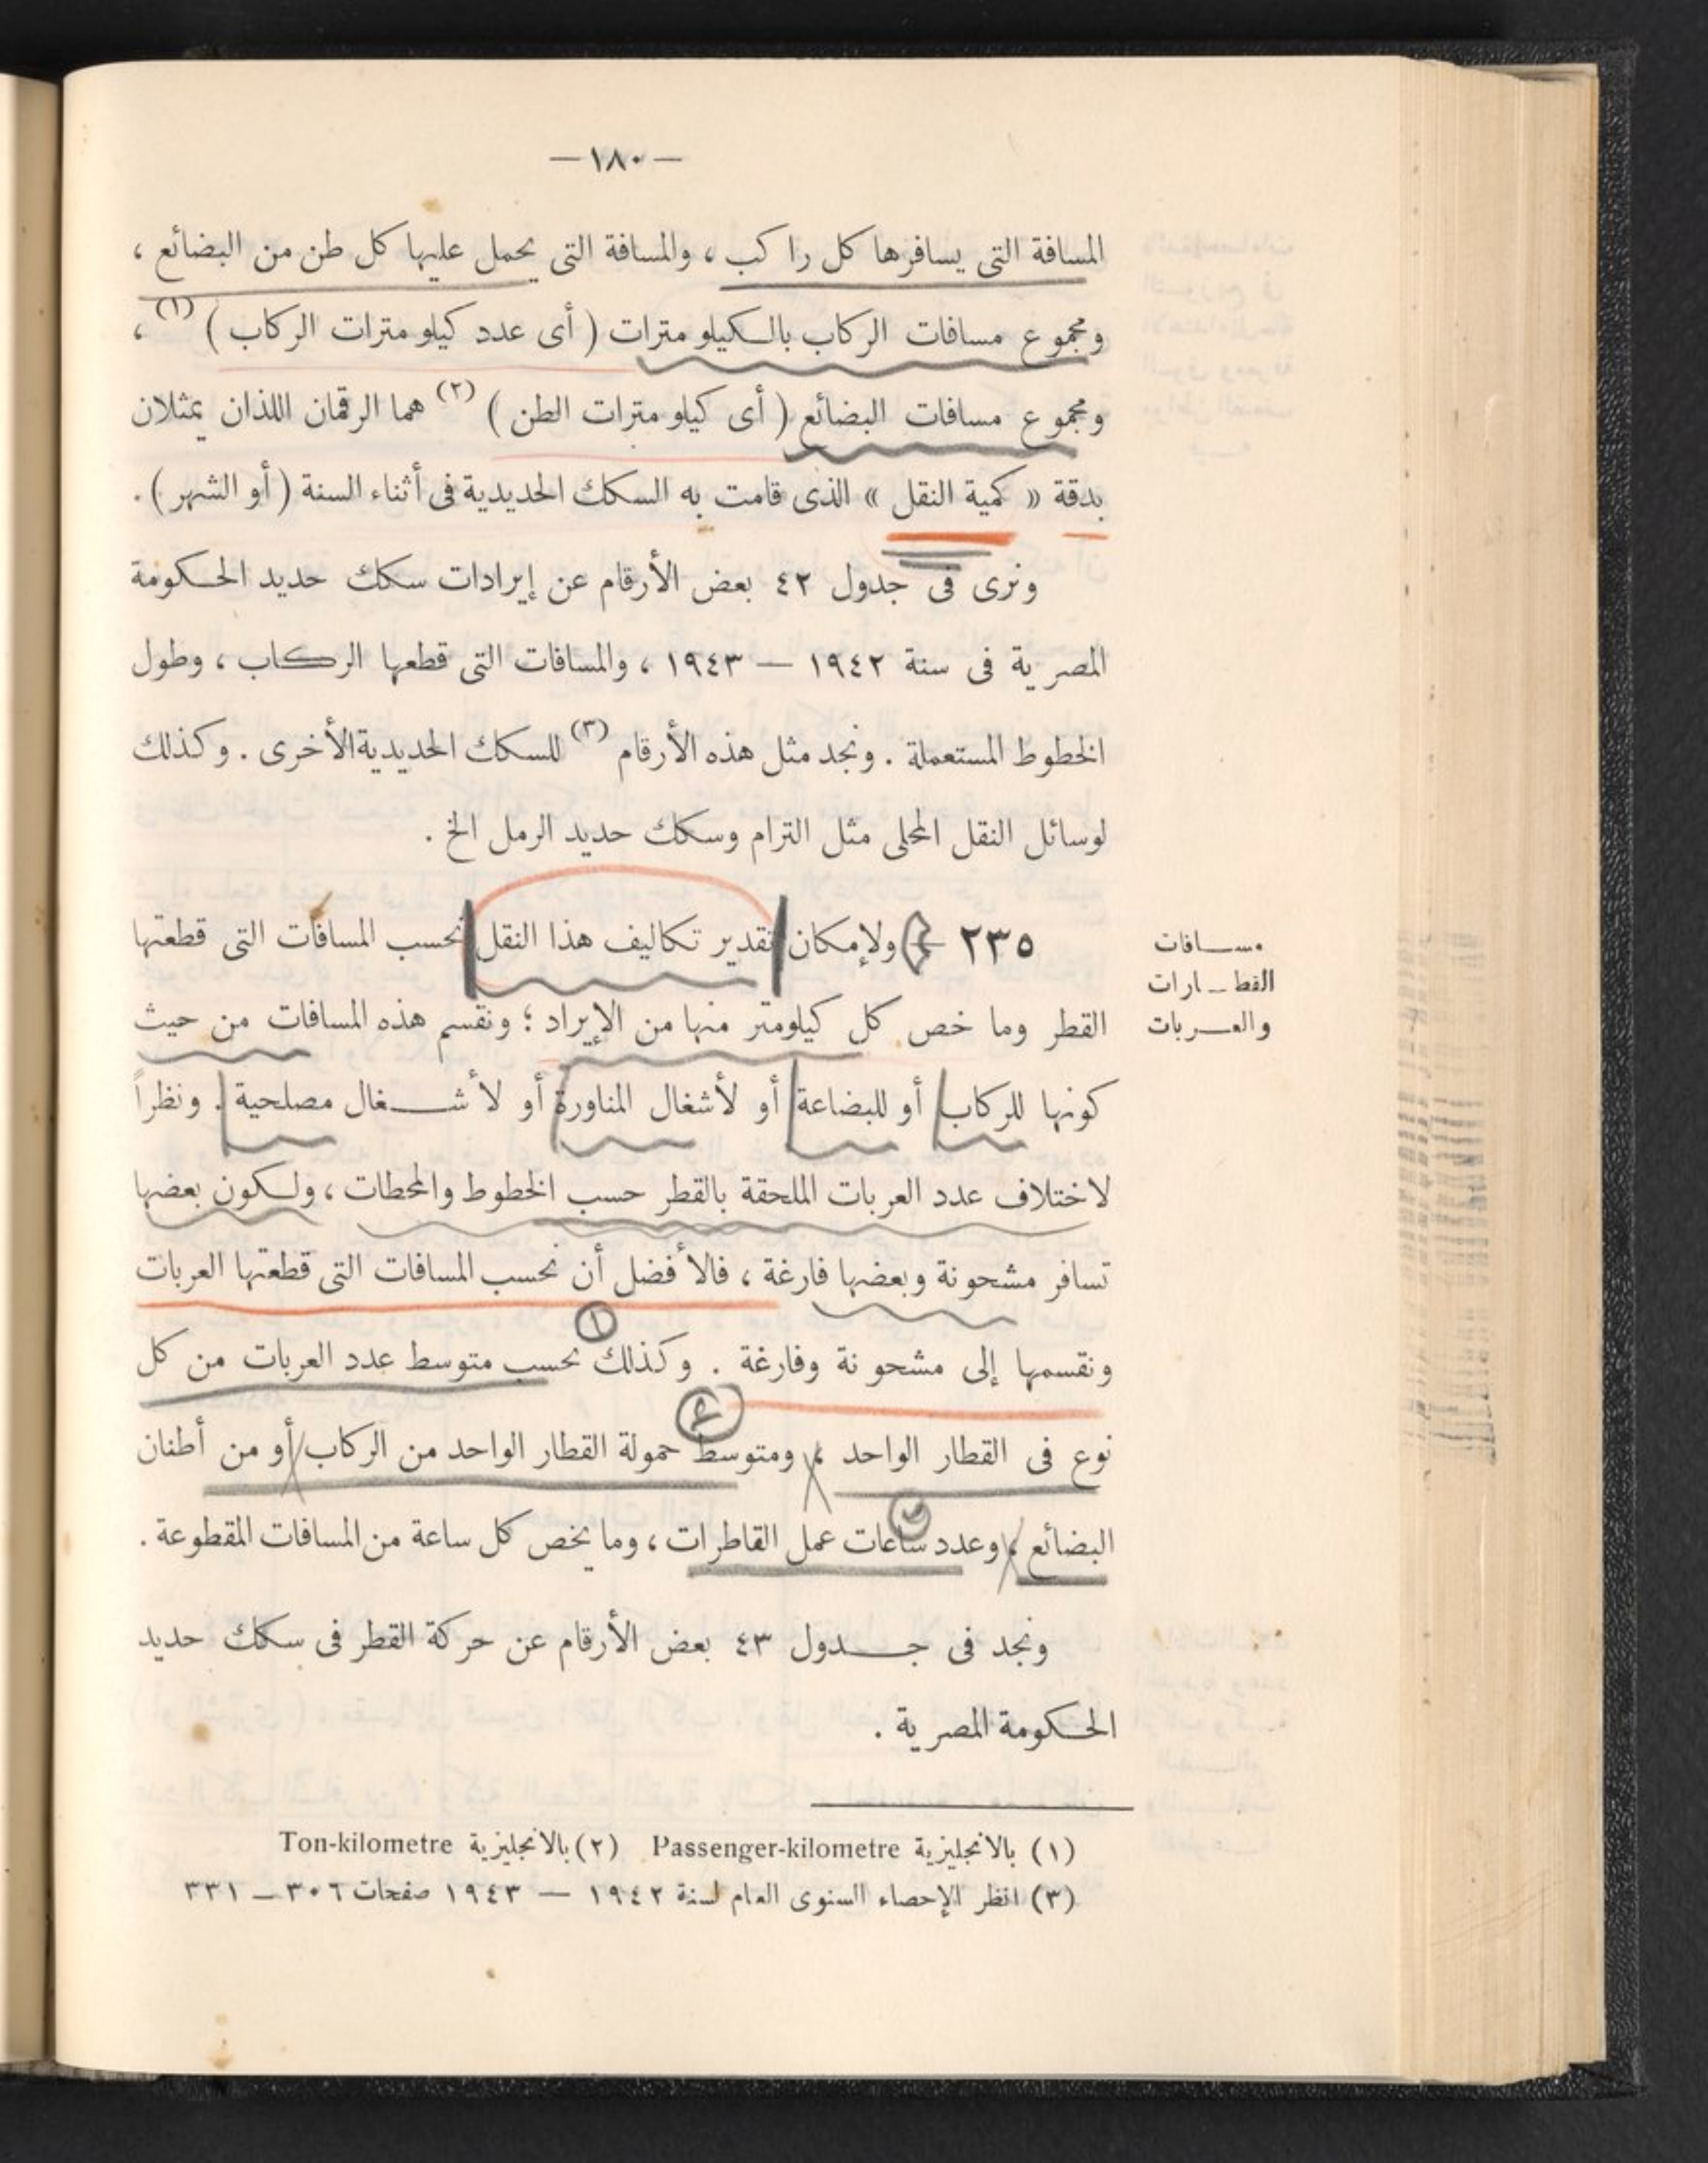 — ١٨٠ —
المسافة التى يسافرها كل راكب ، والمسافة التى يحمل عليها كل طن من البضائع ،
ومجموع مسافات الركاب بالكيلو مترات ( أى عدد كيلو مترات الركاب ) (١) ،
ومجموع مسافات البضائع ( أى كيلو مترات الطن ) (٢) هما الرقمان اللذان يمثلان
بدقة « كمية النقل » الذى قامت به السكك الحديدية فى أثناء السنة ( أو الشهر ) .
ونرى فى جدول ٤٢ بعض الأرقام عن إيرادات سكك حديد الحكومة
المصرية فى سنة ١٩٤٢ — ١٩٤٣ ، والمسافات التى قطعها الركاب ، وطول
الخطوط المستعملة . ونجد مثل هذه الأرقام (٣) للسكك الحديدية الأخرى . وكذلك
لوسائل النقل المحلى مثل الترام وسكك حديد الرمل الخ .
مسافات
القطارات
والعربات
٢٣٥ — ولإمكان تقدير تكاليف هذا النقل نحسب المسافات التى قطعتها
القطر وما خص كل كيلومتر منها من الإيراد ؛ ونقسم هذه المسافات من حيث
كونها للركاب أو للبضاعة أو لأشغال المناورة أو لأشغال مصلحية . ونظراً
لاختلاف عدد العربات الملحقة بالقطر حسب الخطوط والمحطات ، ولكون بعضها
تسافر مشحونة وبعضها فارغة ، فالأفضل أن نحسب المسافات التى قطعتها العربات
ونقسمها إلى مشحونة وفارغة . وكذلك نحسب متوسط عدد العربات من كل
نوع فى القطار الواحد ، ومتوسط حمولة القطار الواحد من الركاب أو من أطنان
البضائع ، وعدد ساعات عمل القاطرات ، وما يخص كل ساعة من المسافات المقطوعة .
ونجد فى جدول ٤٣ بعض الأرقام عن حركة القطر فى سكك حديد
الحكومة المصرية .
(١) بالانجليزية Passenger-kilometre (٢) بالانجليزية Ton-kilometre
(٣) انظر الإحصاء السنوى العام لسنة ١٩٤٢ — ١٩٤٣ صفحات ٣٠٦ — ٣٣١